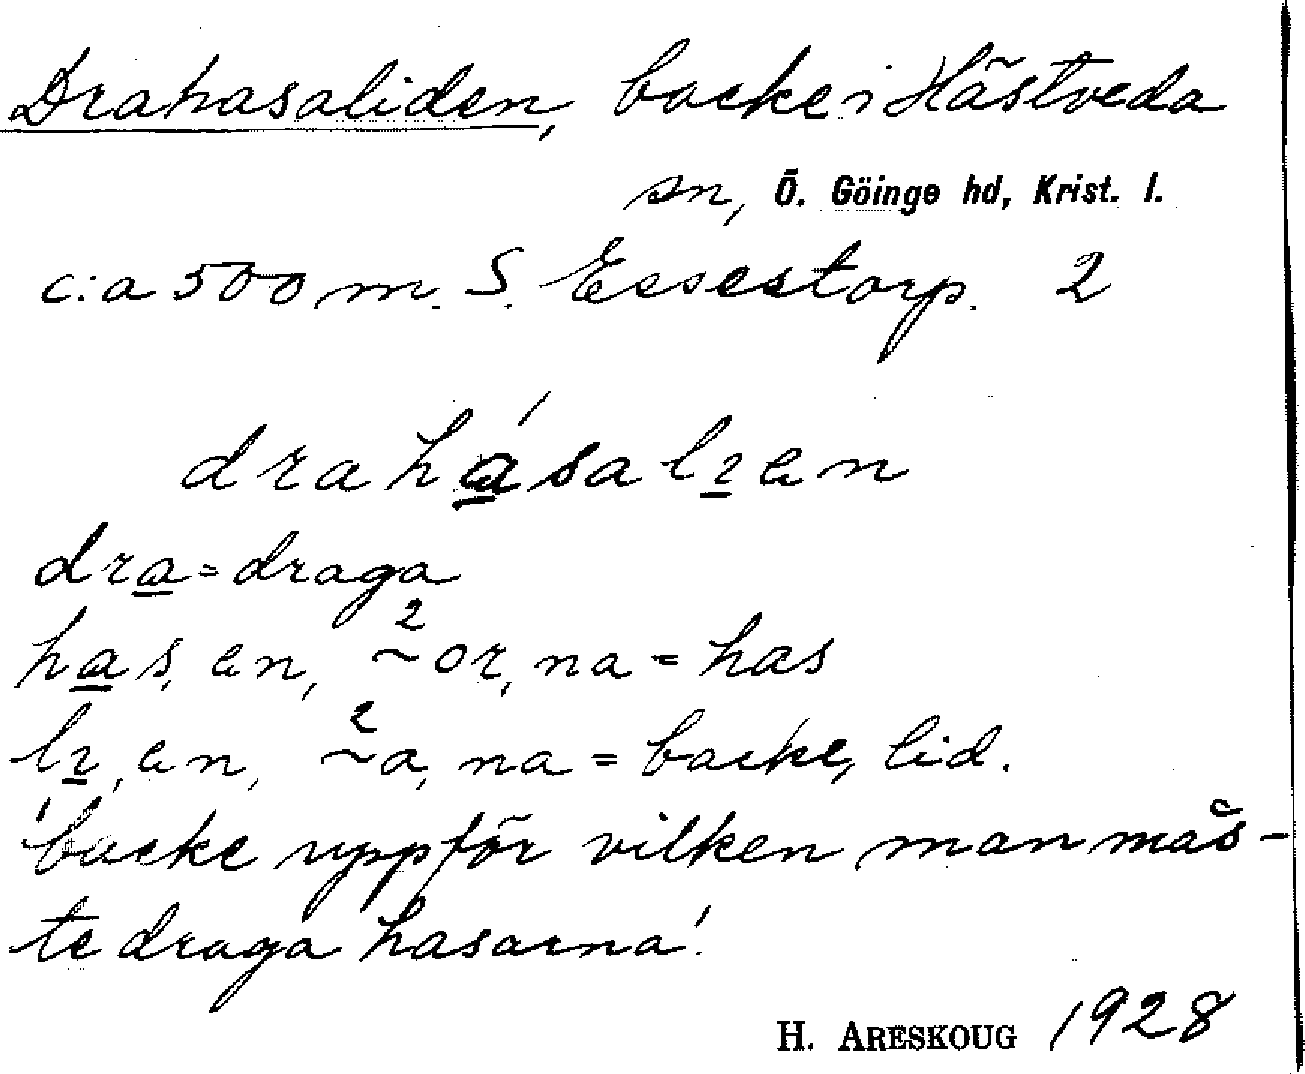 Drahasaliden, backe i Hästveda
sn, Ö. Göinge hd, Krist. l.
c:a 500 m. S. Essestorp. 2
drahásalɪen
dra = draga
has, en, ~2or, na = has
lɪ, en, ~2a, na = backe, lid.
'backe uppför vilken man mås-
te draga hasorna'.
H. ARESKOUG 1928